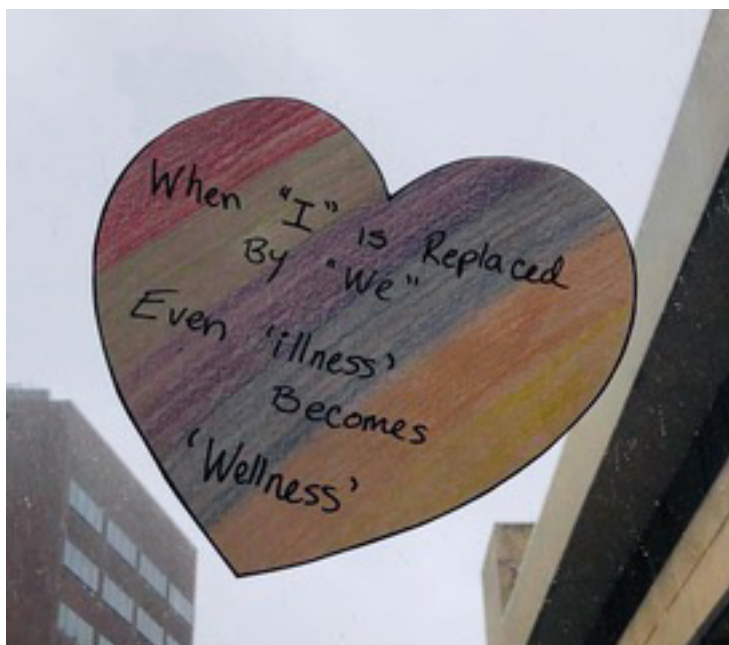 When "I" is Replaced
By "We"
Even 'illness'
Becomes
'Wellness'